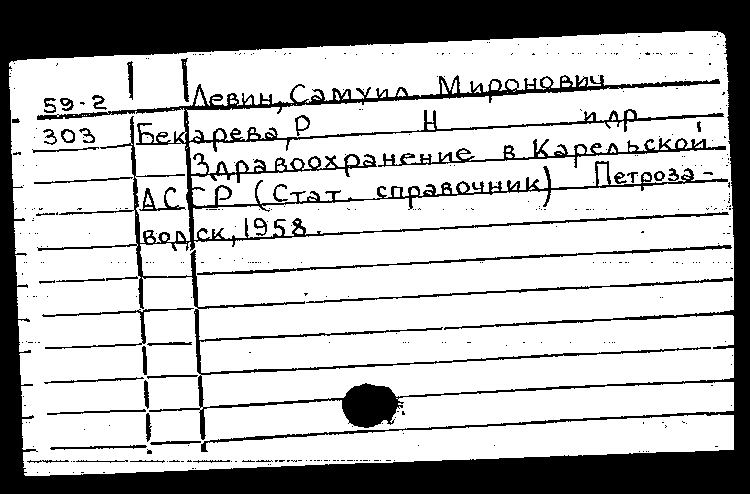 59-2 Левин, Самуил Миронович
303 Бекарева, Р Н и др
Здравоохранение в Карельской
АССР (Стат. справочник) Петроза-
водск, 1958.